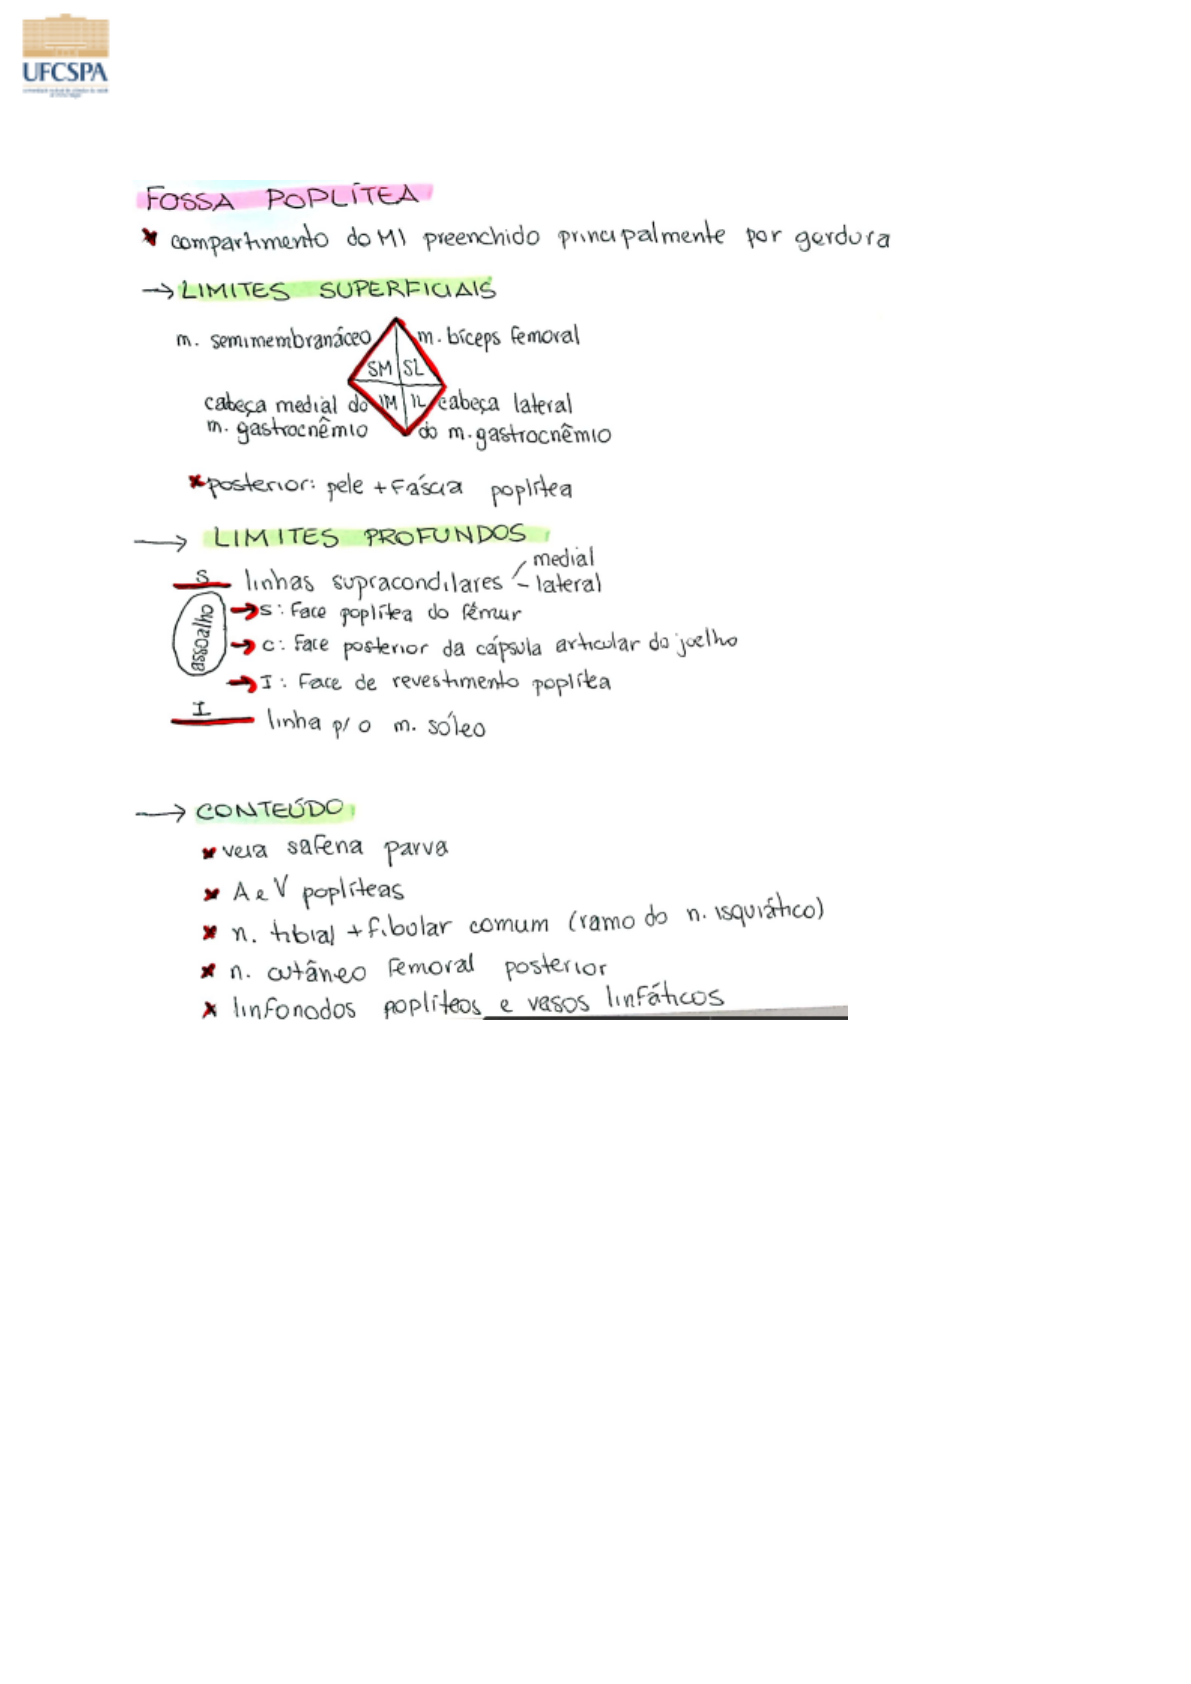 UFCSPA
FOSSA POPLÍTEA
compartimento do MI preenchido principalmente por gordura
→ LIMITES SUPERFICIAIS
m. semimembranáceo m. bíceps femoral
SM SL
cabeça medial do IM IL cabeça lateral
m. gastrocnêmio do m. gastrocnêmio
posterior: pele + fáscia poplítea
→ LIMITES PROFUNDOS
medial
S linhas supracondilares lateral
assoalho
→ S: Face poplítea do fêmur
→ C: Face posterior da cápsula articular do joelho
→ I: Face de revestimento poplítea
I linha p/ o m. sóleo
→ CONTEÚDO
veia safena parva
A e V poplíteas
n. tibial + fibular comum (ramo do n. isquiático)
n. cutâneo femoral posterior
linfonodos poplíteos e vasos linfáticos